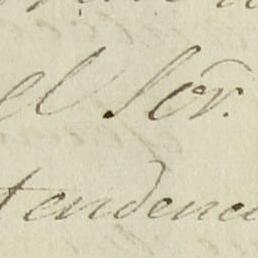 el Sor.
tendenci